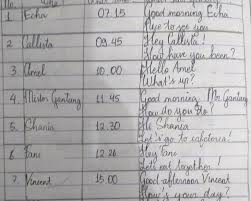 No.
1 Echa 07.15 Good morning Echa
Nice to see you
2 Callista 09.45 Hey Callista!
How have you been?
3 Amel 10.00 Hello Amel
What's up?
4. Mister Ganteng 11.45 Good morning, Mr. Ganteng
How do you do?
5. Shania 12.30 Hi Shania
Let's go to cafetaria!
6 Fani 12.26 Hey Fani
Let's eat together!
7. Vincent 15.00 Good afternoon Vincent
How's your day?